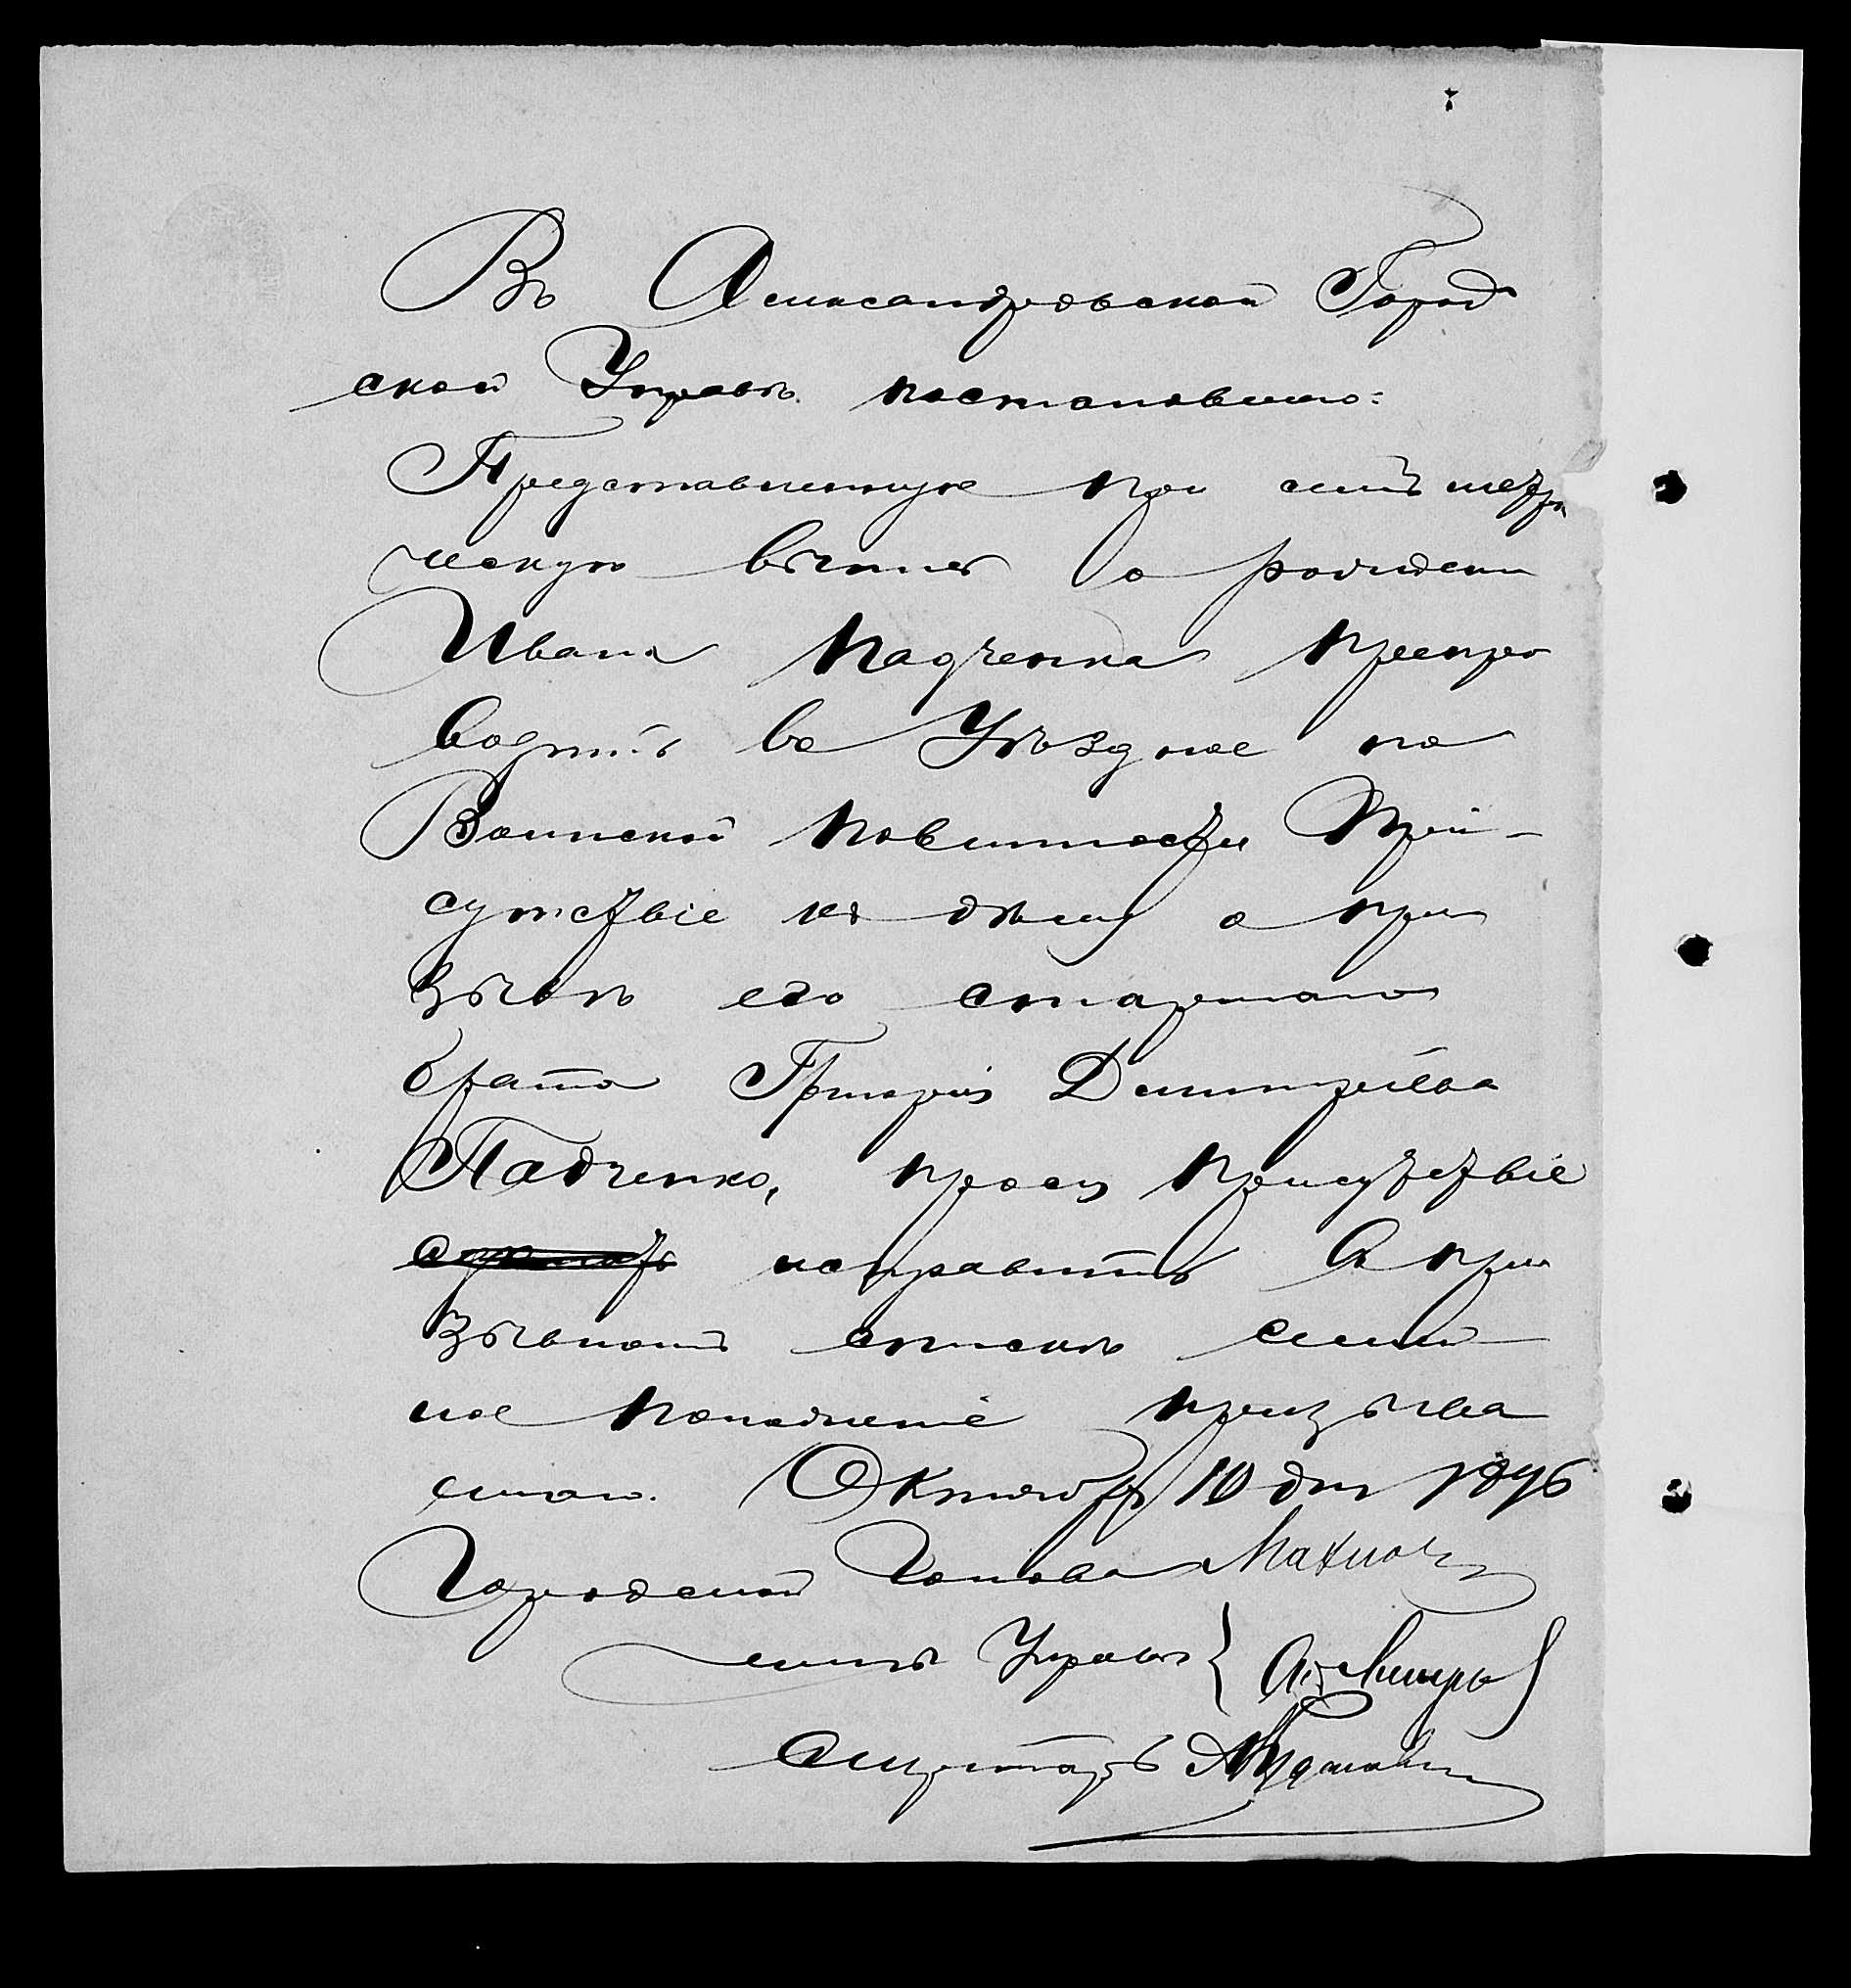 Въ Александровской Город
ской Управѣ постановлено:
Представленную при семъ метри
ческую выпись о рождении
Ивана Падченка препро
водить въ Уѣздное по
Воинской повинности При-
сутствіе къ дѣлу о при
зывѣ его старшаго
брата Григорія Дмитріева
Падченко, прося Присутствіе
исправить въ при
зывномъ спискѣ семей
ное положеніе призыва
емаго. Октября 10 дня 1896
Городской Голова
Члены Управы {
Секретарь